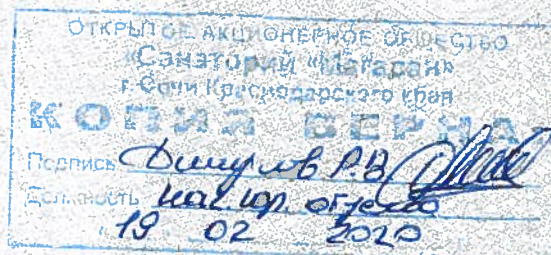 ОТКРЫТОЕ АКЦИОНЕРНОЕ ОБЩЕСТВО
«Санаторий «Магадан»
г. Сочи Краснодарского края
КОПИЯ ВЕРНА
Подпись Р.В.
Должность нач. юр. отдела
19 02 2020